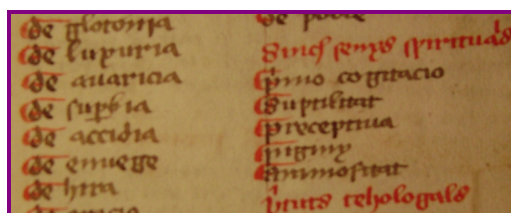 de glotonia
de luxuria
de auaricia
de suꝑbia
de accidia
de enuege
de hira
de poble
Sinch senys spirituals
p̄mo cogitacio
Suptilitat
preceptiua
Animositat
tehologals